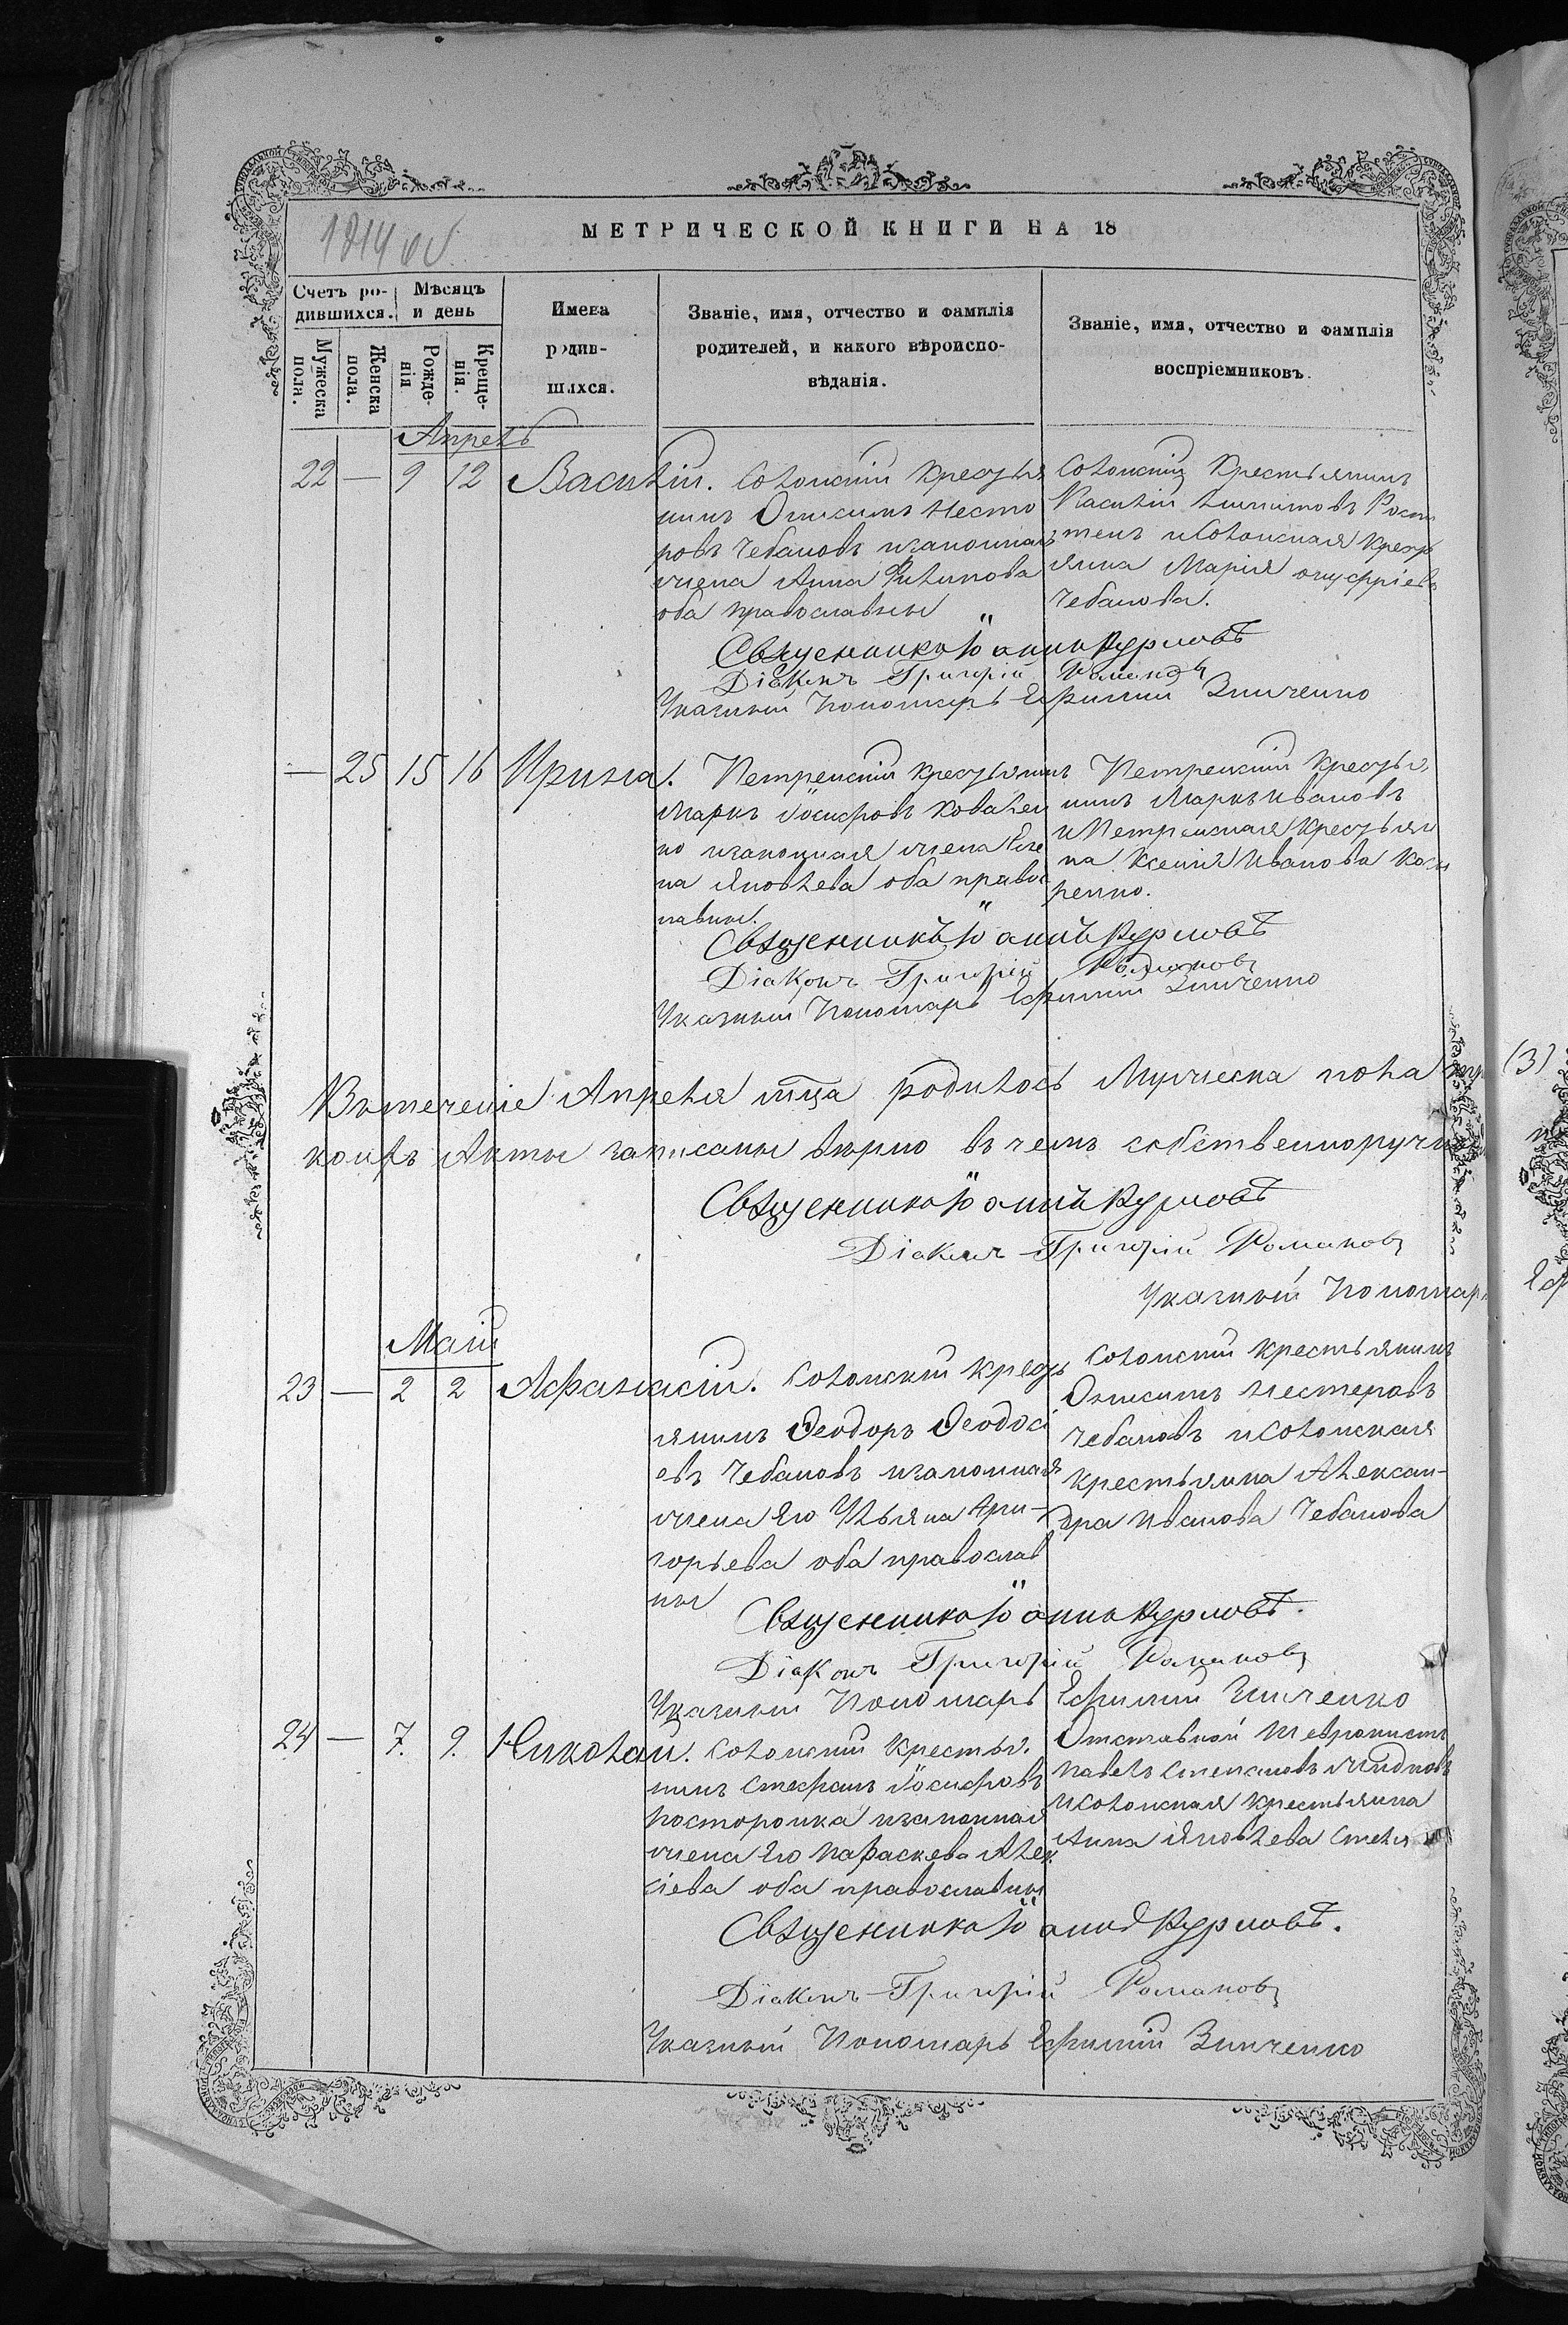 МЕТРИЧЕСКОЙ КНИГИ НА 18
Счетъ ро-
дившихся.
Мѣсяцъ
и день
Имена
родив-
шихся.
Званіе, имя, отчество и фамилія
родителей, и какого вѣроиспо-
вѣданія.
Званіе, имя, отчество и фамилія
воспріемниковъ.
Мужеска
пола.
Женска
пола.
Рожде-
нія
Креще-
нія.
Апрель
22 — 9 12 Василій.
Солонскій Крестья
нинъ Онисимъ Несто
ровъ Чебановъ изаконная
жена Анна Филипова
оба православны
Солонскій Крестьянинъ
Василій
иСолонская Кресть
янка Марія онуфріева
Чебанова.
Священникъ Іоаннъ Курловъ
Діаконъ Григорій Романовъ
Указный Пономарь Ефимій Зинченко
— 25 15 16 Ирина.
Петренскій крестьянинъ
Маркъ Іосифовъ Ковален
ко изаконная жена Еле
на Яковлева оба правос
лавны.
Петренскій Крестья
нинъ Маркъ Ивановъ
и Петренская Крестьян
ка Ксенія Иванова Кос
ренко.
Священникъ Іоаннъ Курловъ
Діаконъ Григорій Романовъ
Указный Пономарь Ефимій Зинченко
Втеченіе Апреля мца родилось Мужеска пола
коихъ Акты записаны вѣрно въ чемъ собственноручно
Священникъ Іоаннъ Курловъ
Діаконъ Григорій Романовъ
Указный Пономарь
(3)
Маій
23 — 2 2 Афанасій.
Солонскій Кресть
янинъ Ѳеодоръ Ѳеодосі
евъ Чебановъ изаконная
жена Его Ульяна Гри-
горьева оба православ
ны
Солонскій Крестьянинъ
Онисимъ Нестеровъ
Чебановъ иСолонская
Крестьянка Алексан-
дра Иванова Чебанова
Священникъ Іоаннъ Курловъ.
Діаконъ Григорій Романовъ
Указный Пономарь Ефимій Зинченко
24 — 7. 9. Николай.
Солонскій Крестья.
нинъ Стефанъ Іосифовъ
Посторонка изаконная
жена Его Параскева Алек
сіева оба православны
Отставной
Павелъ Степановъ
иСолонская Крестьянка
Анна Яковлева
Священникъ Іоаннъ Курловъ.
Діаконъ Григорій Романовъ
Указный Пономарь Ефимій Зинченко